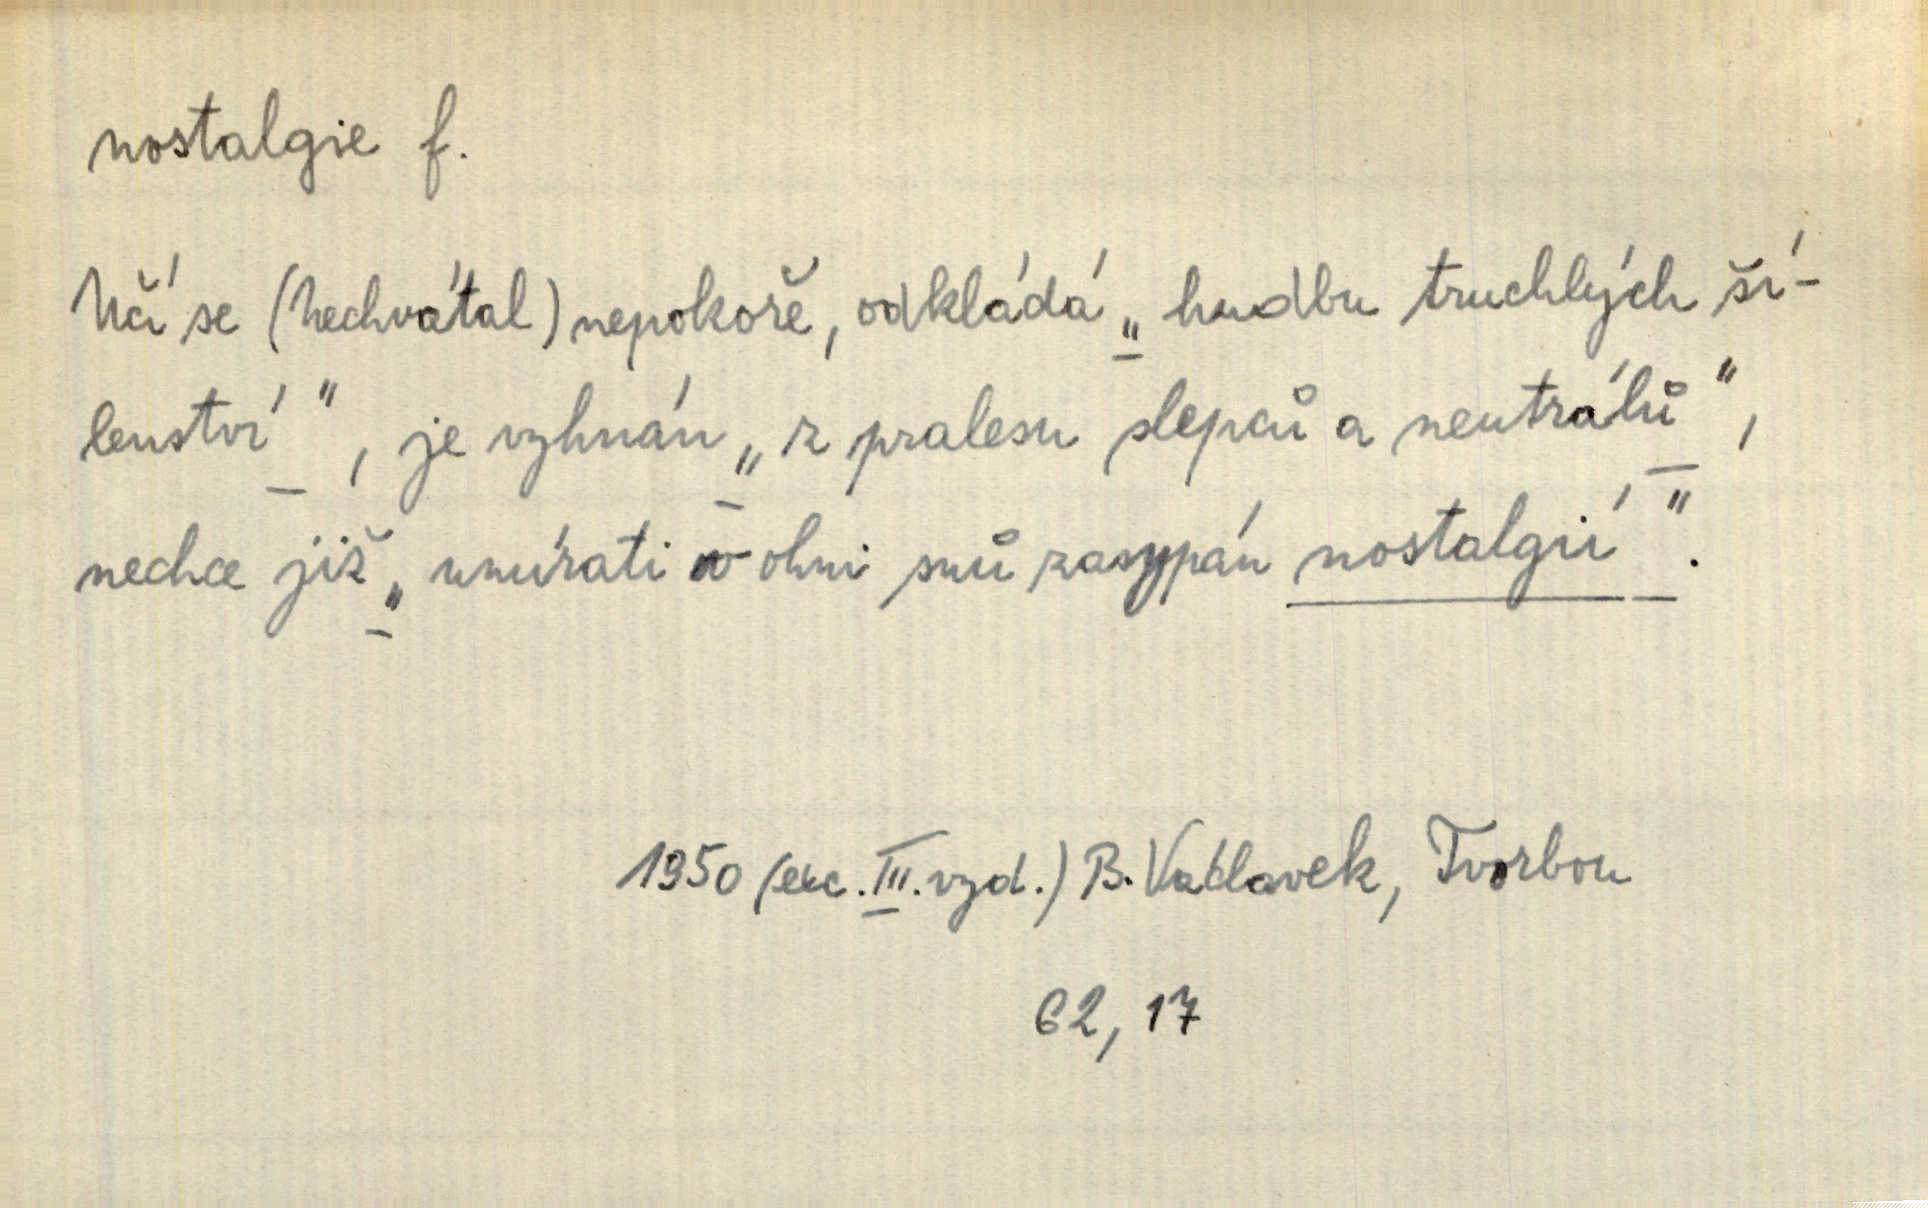 nostalgie f.
Učí se (Nechvátal) nepokoře, odkládá „hudbu truchlých ší-
lenství“, je vyhnán „z pralesu slepců a neutrálů“,
nechce již „umírati v ohni snů zasypán nostalgií“.
1950 (exc. III. vyd.) B. Václavek, Tvorbou
62, 17